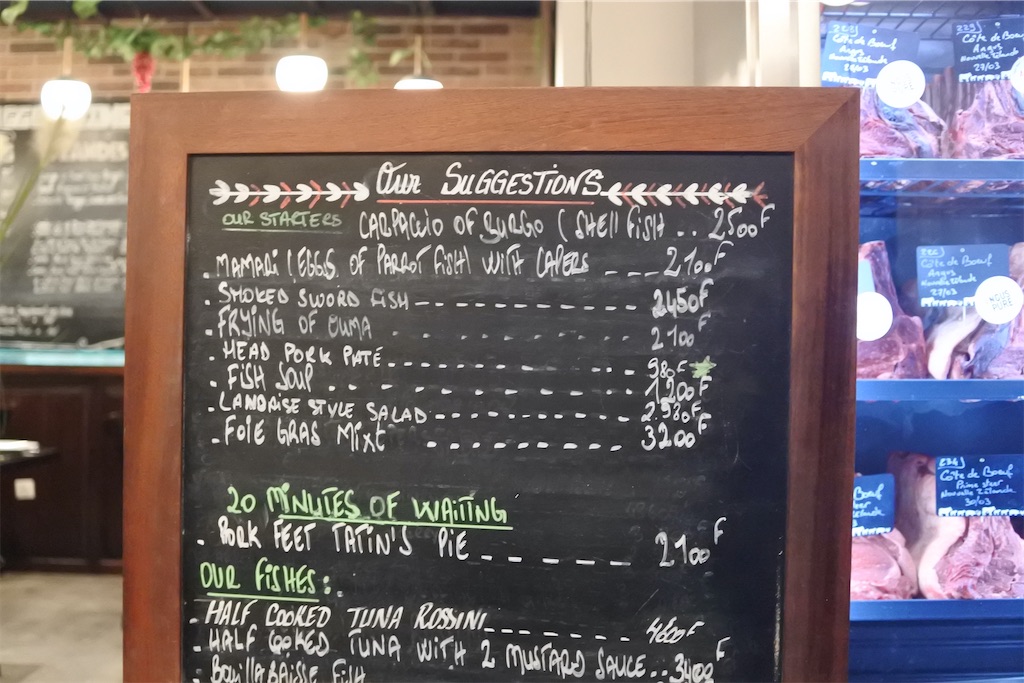 Our SUGGESTIONS
OUR STARTERS CARPACCIO OF BURGO ( SHELL FISH .. 2500F
. MAMARI (EGGS OF PARROT FISH) WITH CAPERS --- 2100F
. SMOKED SWORD FISH -------------- 2450F
. FRYING OF OUMA - - - - - - - - - 2100F
. HEAD PORK PATE ------------- 980F
. FISH SOUP . . - - - - - - - - - - 1200F
. LANDAISE STYLE SALAD ------------ 2980F
. FOIE GRAS MIXT - - - - - - - - - 3200F
20 MINUTES OF WAITING
. PORK FEET TATIN'S PIE ------ 2100F
OUR FISHES :
. HALF COOKED TUNA ROSSINI --------- 4600F
. HALF COOKED TUNA WITH 2 MUSTARD SAUCE .. 3400F
. BOUILLABAISSE FISH
Côte de Boeuf
Angus
Nouvelle Zélande
27/03
225)
Côte de Boeuf
Angus
Nouvelle Zélande
27/03
Côte de Boeuf
Angus
Nouvelle Zélande
27/03
Boeuf
Côte de Boeuf
Prime steer
Nouvelle Zélande
30/03